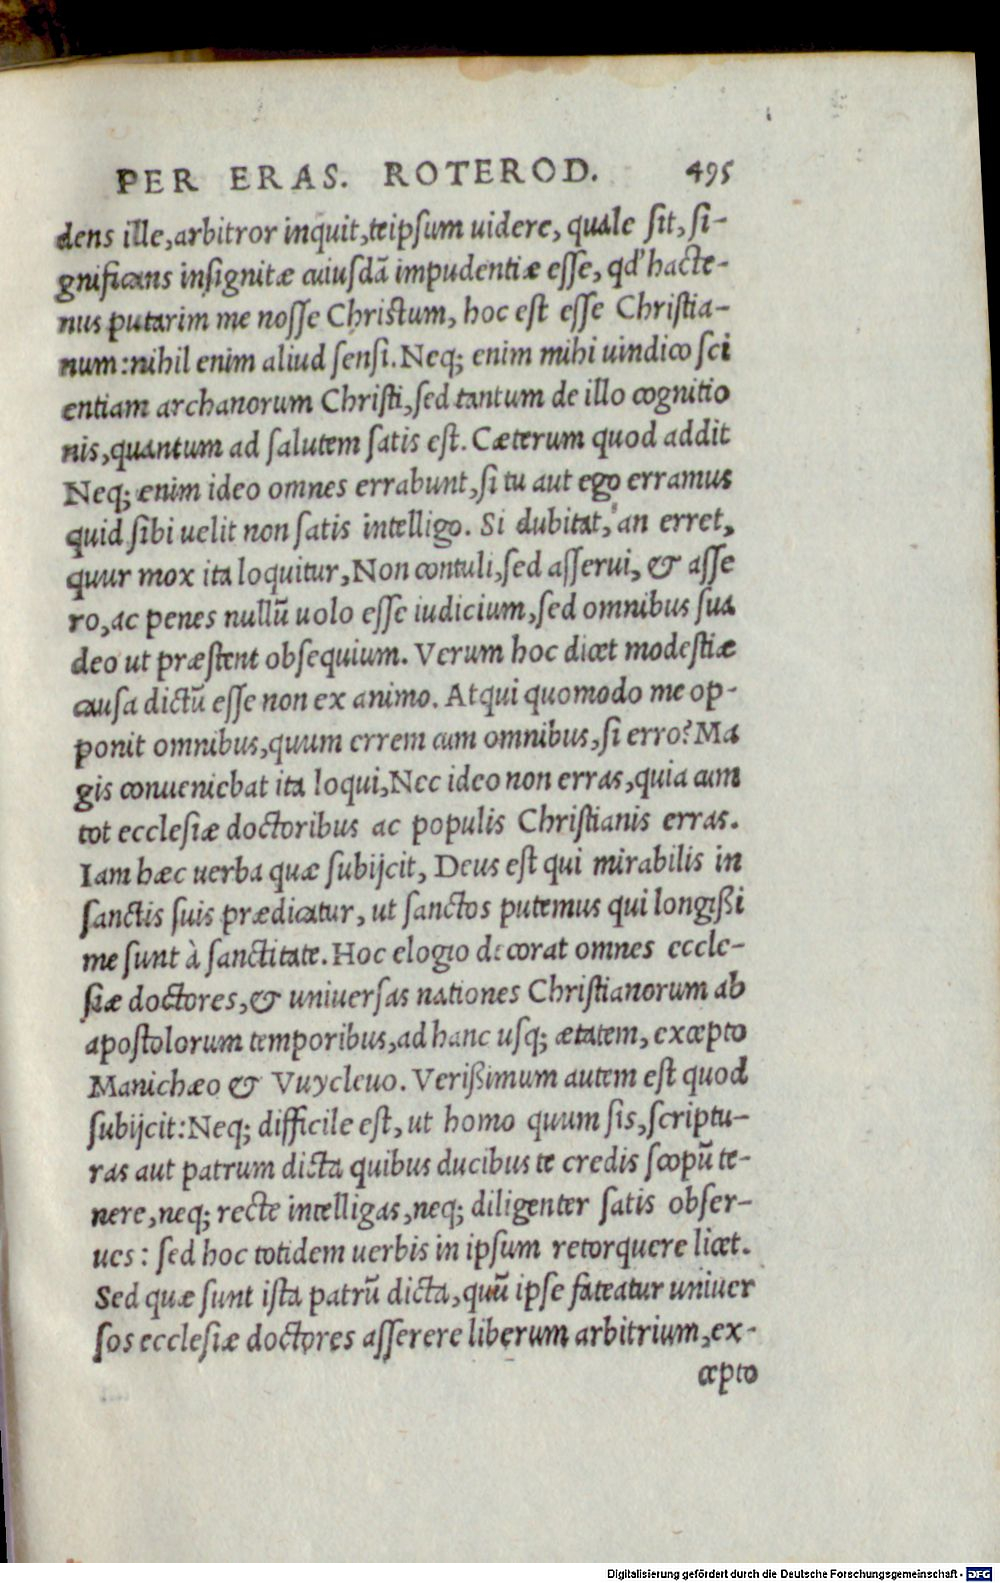 PER ERAS. ROTEROD. 495
dens ille, arbitror inquit, teipsum uidere, quale sit, si-
gnificans insignitæ cuiusdā impudentiæ esse, qd' hacte-
nus putarim me nosse Christum, hoc est esse Christia-
num: nihil enim aliud sensi. Neq; enim mihi uindico sci
entiam archanorum Christi, sed tantum de illo cognitio
nis, quantum ad salutem satis est. Cæterum quod addit
Neq; enim ideo omnes errabunt, si tu aut ego erramus
quid sibi uelit non satis intelligo. Si dubitat, an erret,
quur mox ita loquitur, Non contuli, sed asserui, & asse
ro, ac penes nullū uolo esse iudicium, sed omnibus sua
deo ut præstent obsequium. Verum hoc dicet modestiæ
causa dictū esse non ex animo. Atqui quomodo me op-
ponit omnibus, quum errem cum omnibus, si erro? Ma
gis conueniebat ita loqui, Nec ideo non erras, quia cum
tot ecclesiæ doctoribus ac populis Christianis erras.
Iam hæc uerba quæ subijcit, Deus est qui mirabilis in
sanctis suis prædicatur, ut sanctos putemus qui longißi
me sunt à sanctitate. Hoc elogio decorat omnes eccle-
siæ doctores, & uniuersas nationes Christianorum ab
apostolorum temporibus, ad hanc usq; ætatem, excepto
Manichæo & Vuycleuo. Verißimum autem est quod
subijcit: Neq; difficile est, ut homo quum sis, scriptu-
ras aut patrum dicta quibus ducibus te credis scopū te-
nere, neq; recte intelligas, neq; diligenter satis obser-
ues: sed hoc totidem uerbis in ipsum retorquere licet.
Sed quæ sunt ista patrū dicta, quū ipse fateatur uniuer
sos ecclesiæ doctores asserere liberum arbitrium, ex-
cepto
Digitalisierung gefördert durch die Deutsche Forschungsgemeinschaft - DFG